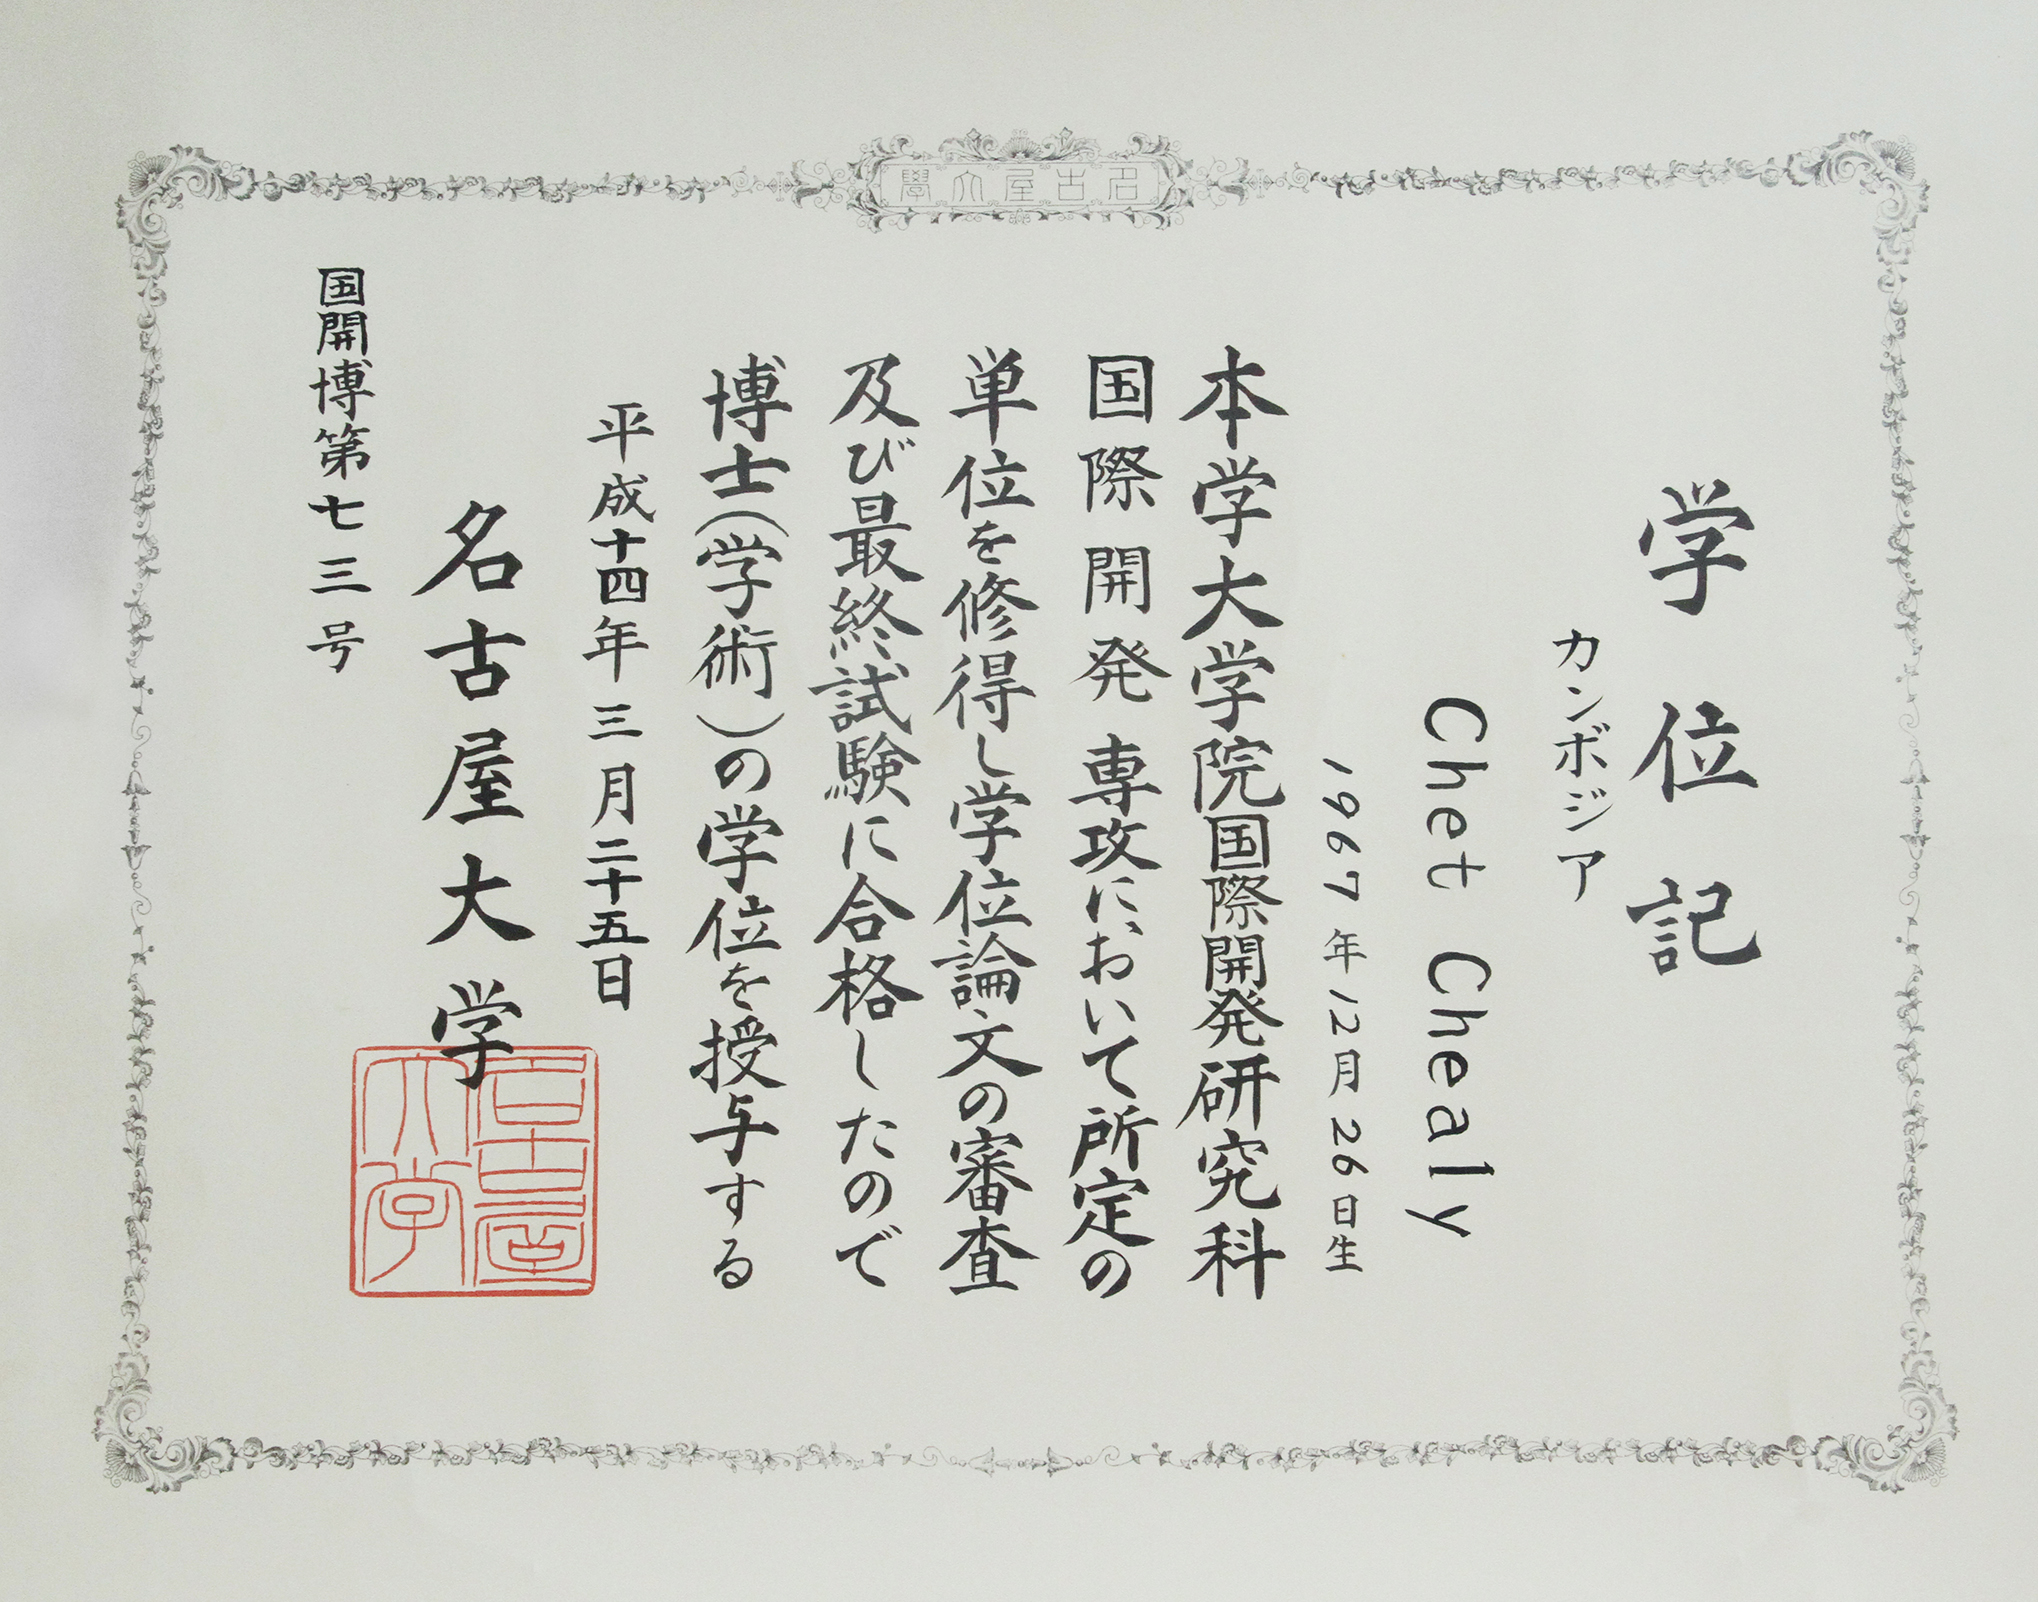 名古屋大學
学位記
カンボジア
Chet Chealy
1967年12月26日生
本学大学院国際開発研究科
国際開発専攻において所定の
単位を修得し学位論文の審査
及び最終試験に合格したので
博士(学術)の学位を授与する
平成十四年三月二十五日
名古屋大学
名古屋大学
国開博第七三号